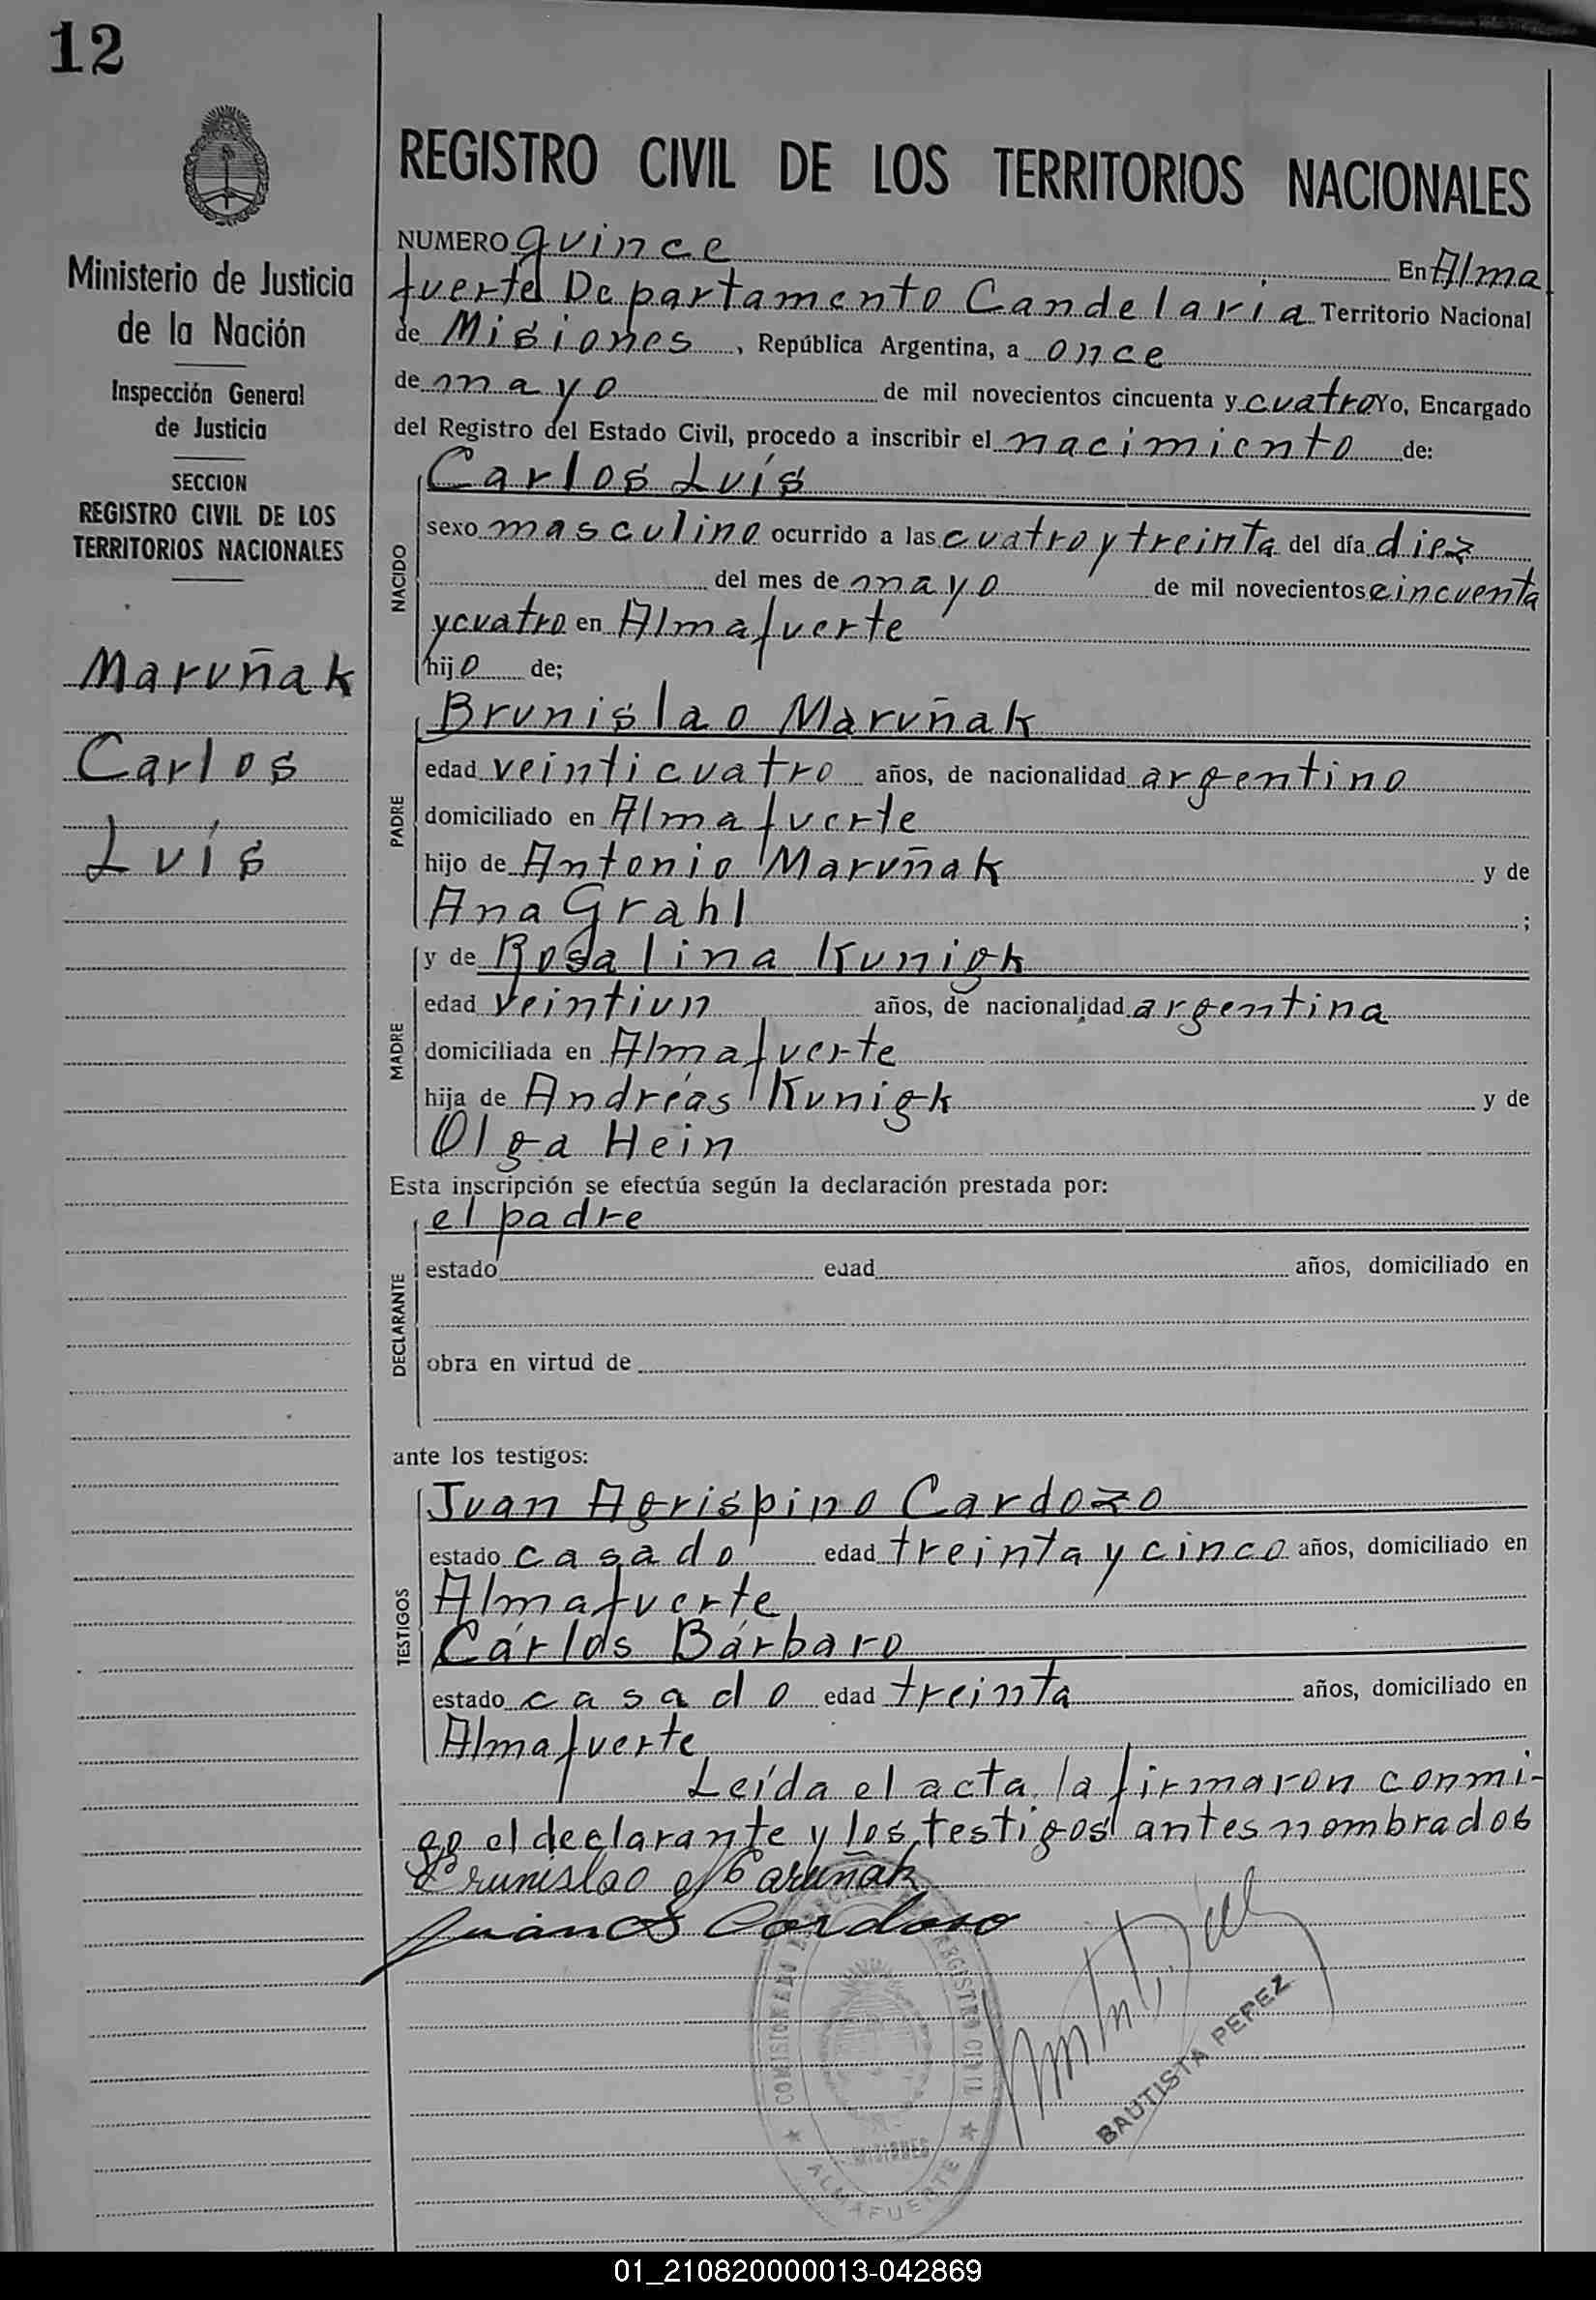 12
Ministerio de Justicia
de la Nación
Inspección General
de Justicia
SECCION
REGISTRO CIVIL DE LOS
TERRITORIOS NACIONALES
Maruñak
Carlos
Luís
REGISTRO CIVIL DE LOS TERRITORIOS NACIONALES
NUMERO quince En Alma
fuerte Departamento Candelaria Territorio Nacional
de Misiones, República Argentina, a once
de mayo de mil novecientos cincuenta y cuatro Yo, Encargado
del Registro del Estado Civil, procedo a inscribir el nacimiento de:
NACIDO
Carlos Luís
sexo masculino ocurrido a las cuatro y treinta del día diez
del mes de mayo de mil novecientos cincuenta
y cuatro en Almafuerte
hijo de;
PADRE
Brunislao Maruñak
edad veinticuatro años, de nacionalidad argentino
domiciliado en Almafuerte
hijo de Antonio Maruñak y de
Ana Grahl ;
MADRE
y de Rosalina Kunigk
edad veintiun años, de nacionalidad argentina
domiciliada en Almafuerte
hija de Andréas Kunigk y de
Olga Hein
Esta inscripción se efectúa según la declaración prestada por:
DECLARANTE
el padre
estado edad años, domiciliado en
obra en virtud de
ante los testigos:
TESTIGOS
Juan Agrispino Cardozo
estado casado edad treinta y cinco años, domiciliado en
Almafuerte
Carlos Bárbaro
estado casado edad treinta años, domiciliado en
Almafuerte
Leída el acta, la firmaron conmi-
go el declarante y los testigos antes nombrados
Brunislao Maruñak
Juan Cardozo
REGISTRO CIVIL
MISIONES
ALMAFUERTE
BAUTISTA PEREZ
01_210820000013-042869